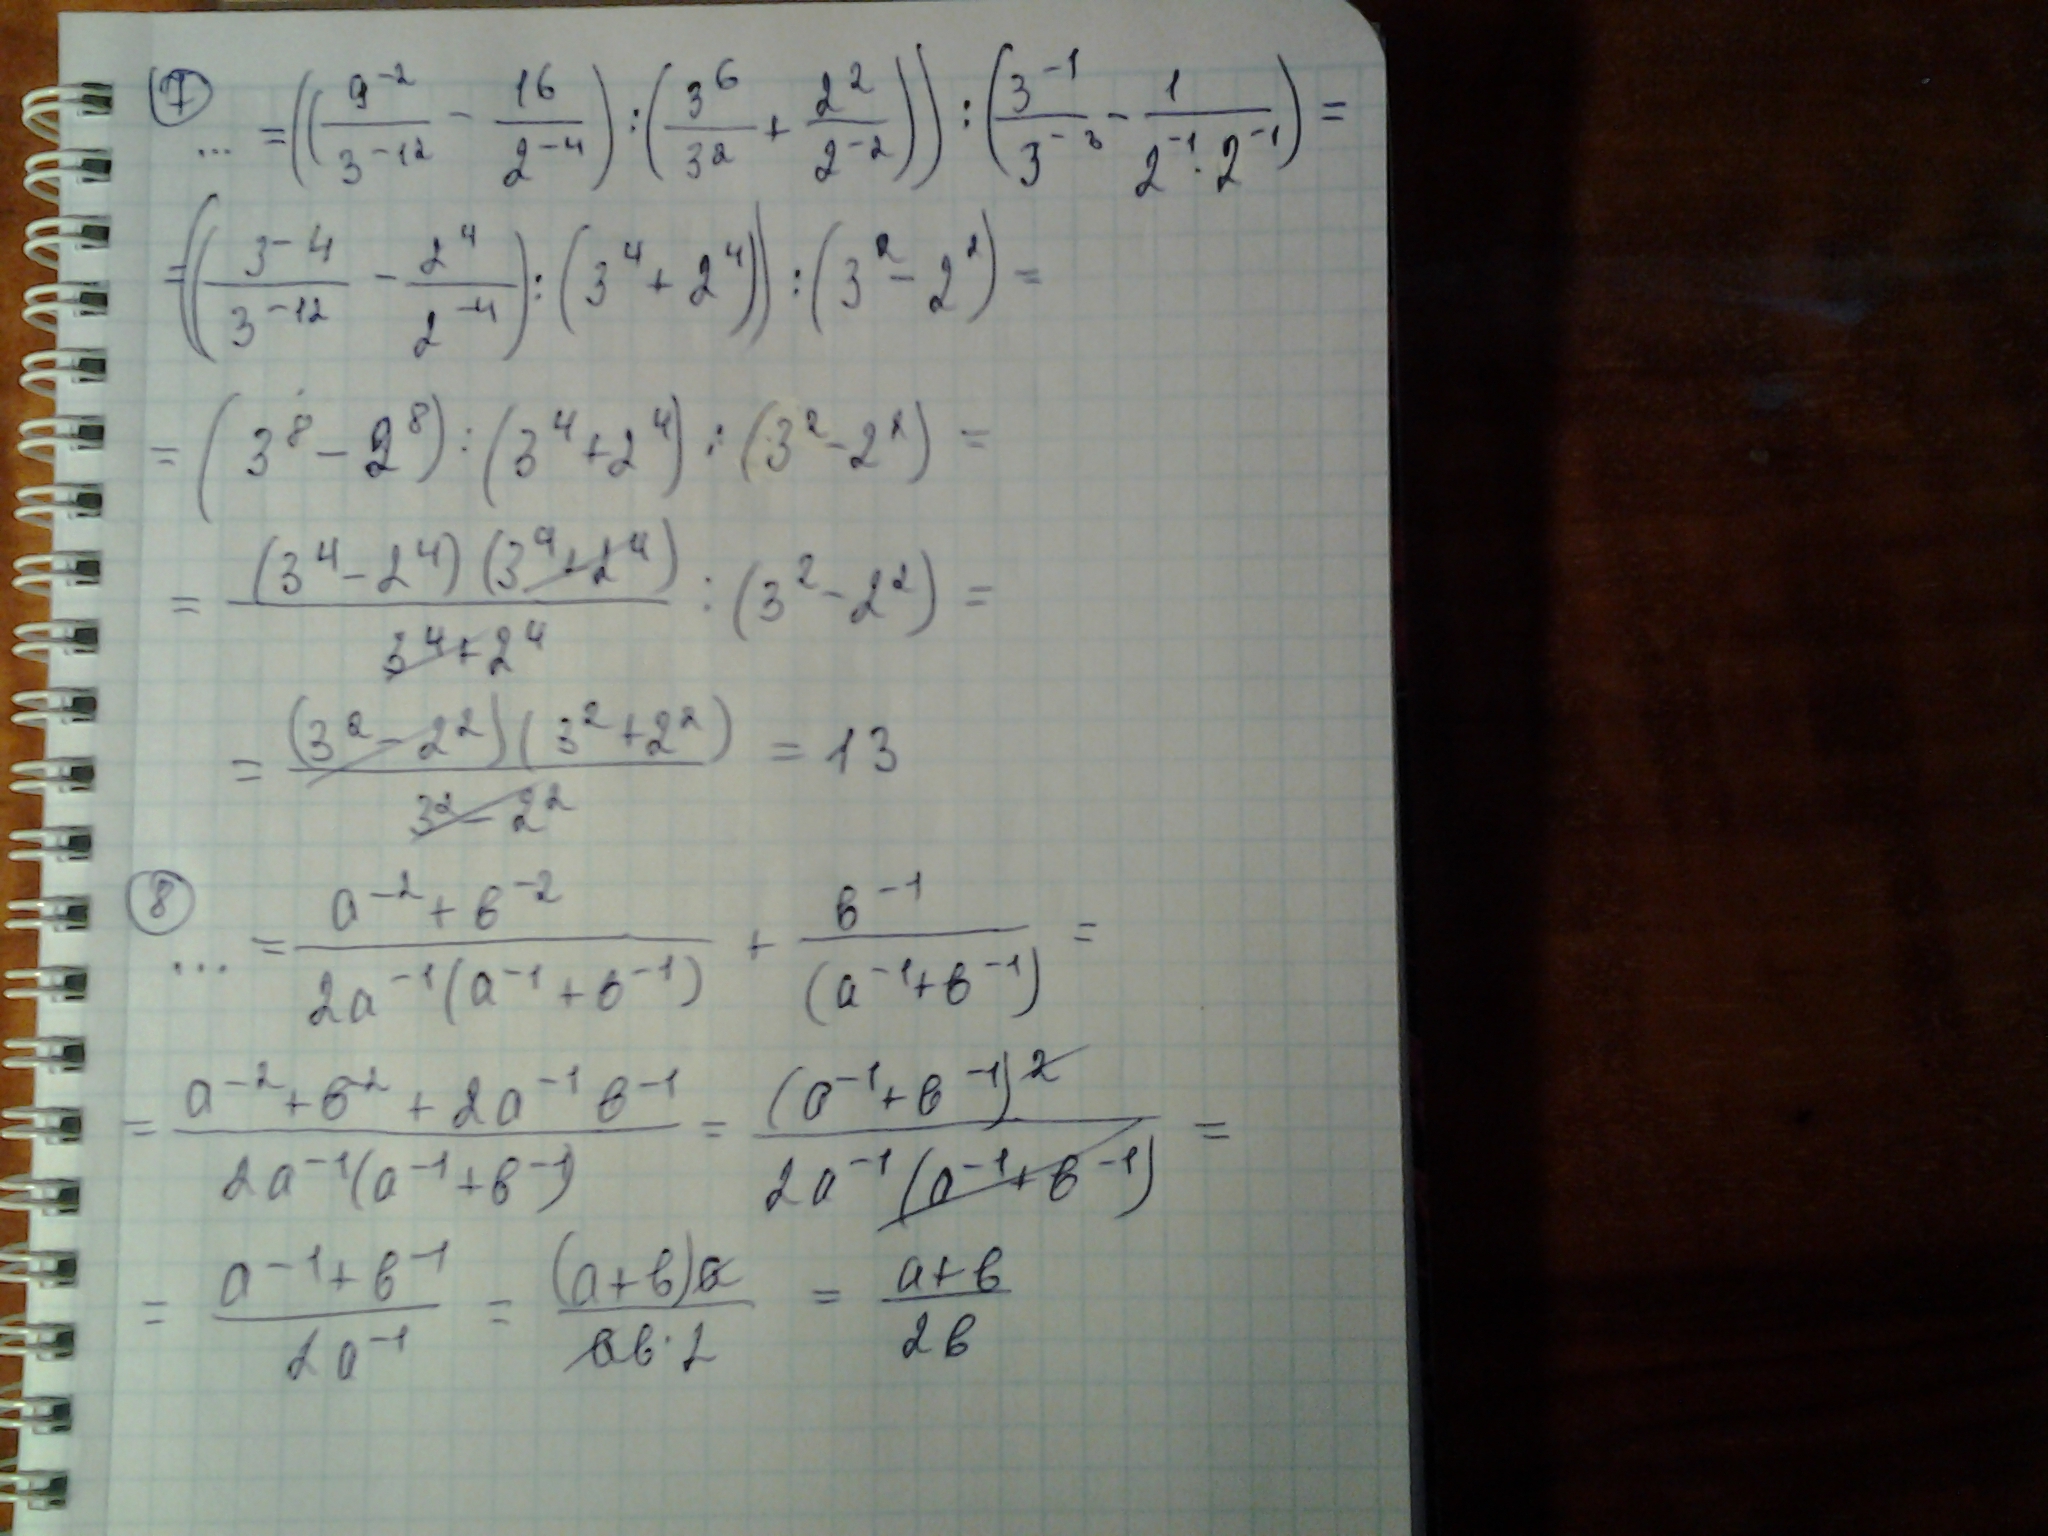 ⑦
... = ((9^-2/3^-12 - 16/2^-4) : (3^6/3^2 + 2^2/2^-2)) : (3^-1/3^-3 - 1/(2^-1 · 2^-1)) =
= ((3^-4/3^-12 - 2^4/2^-4) : (3^4 + 2^4)) : (3^2 - 2^2) =
= (3^8 - 2^8) : (3^4 + 2^4) : (3^2 - 2^2) =
= (3^4 - 2^4)(3^4 + 2^4)/(3^4 + 2^4) : (3^2 - 2^2) =
= (3^2 - 2^2)(3^2 + 2^2)/(3^2 - 2^2) = 13
⑧
... = (a^-2 + в^-2)/(2a^-1(a^-1 + в^-1)) + в^-1/(a^-1 + в^-1) =
= (a^-2 + в^-2 + 2a^-1 в^-1)/(2a^-1(a^-1 + в^-1)) = (a^-1 + в^-1)^2/(2a^-1(a^-1 + в^-1)) =
= (a^-1 + в^-1)/(2a^-1) = (a + в)a/(aв · 2) = (a + в)/(2в)